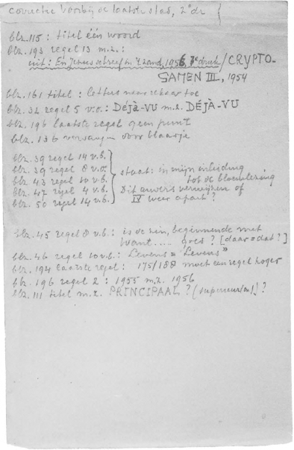 correctie Voorbij de laatste stad, 2e dr
blz. 115 : titel één woord
blz. 192 regel 13 m.z. :
uit: En Jezus schreef in 't zand, 1956, 7e druk / CRYPTO-
GAMEN III, 1954
blz. 161 titel : letters naar elkaar toe
blz. 32 regel 5 v.o. : DÉJÀ-VU m.z. DÉJÀ-VU
blz. 196 laatste regel op een punt
blz. 136 vervangen door blaasje
blz. 29 regel 14 v.b.
blz. 29 regel 8 v.o.
blz. 43 regel 10 v.b.
blz. 47 regel 4 v.b.
blz. 50 regel 14 v.b.
staat: in mijn inleiding
tot de bloemlezing
Dit anders verwijzen of
IV weer apart ?
blz. 45 regel 8 v.b. : is de zin, beginnende met
want.... goed ? [daar dat ?]
blz. 46 regel 10 v.b. : Levens "Levens"
blz. 194 laatste regel : 175/188 moet een regel hoger
blz. 196 regel 2 : 1955 m.z. 1956
blz. 111 titel m.z. PRINCIPAAL ? (superieur) ! ?